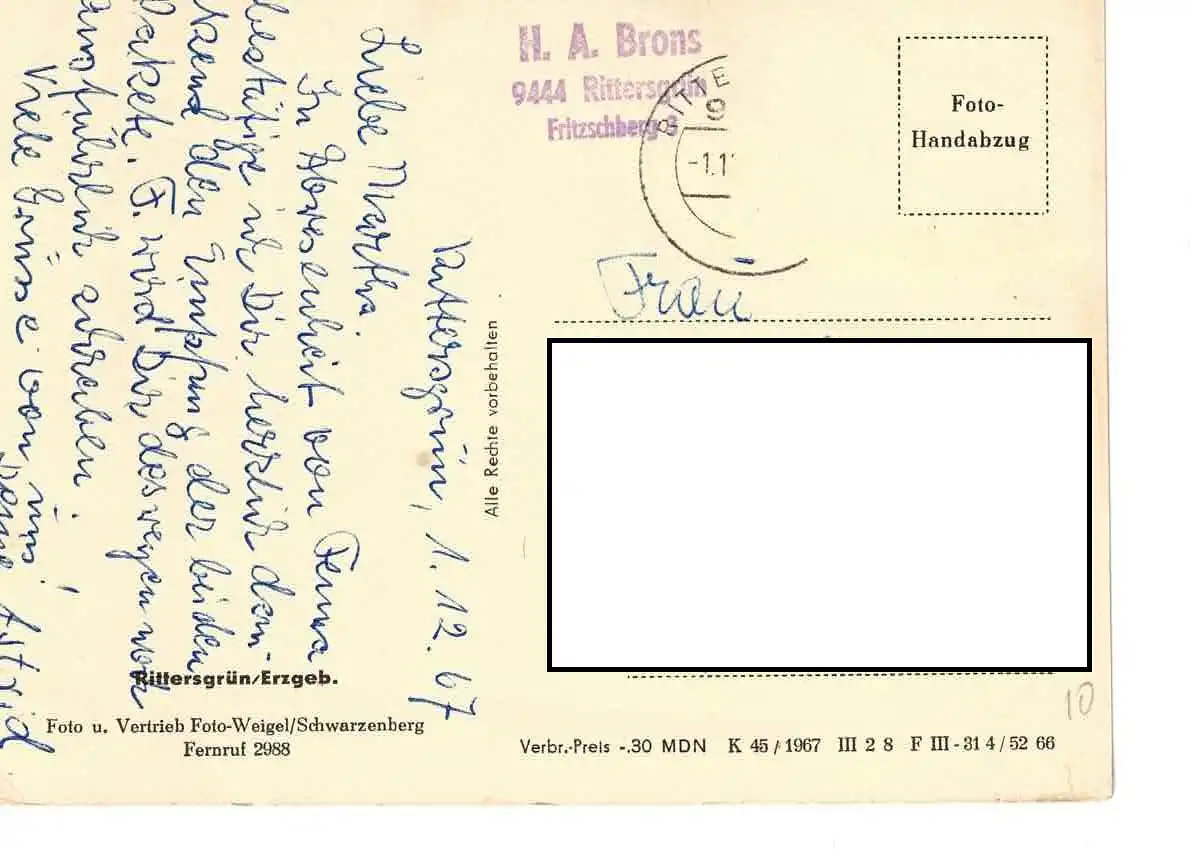 H. A. Brons
9444 Rittersgrün
Fritzschberg 3
RITTE
9
-1.1
Foto-
Handabzug
Frau
Alle Rechte vorbehalten
Rittersgrün, 1. 12. 67
Liebe Martha.
In Abwesenheit von Fenna
bestätige ich Dir herzlich dan-
kend den Empfang der beiden
Pakete. F. wird Dir deswegen noch
ausführlich schreiben.
Viele Grüsse von uns!
Deine Astrid
Rittersgrün/Erzgeb.
Foto u. Vertrieb Foto-Weigel/Schwarzenberg
Fernruf 2988
Verbr.-Preis -.30 MDN K 45/1967 III 2 8 F III-31 4/52 66
10